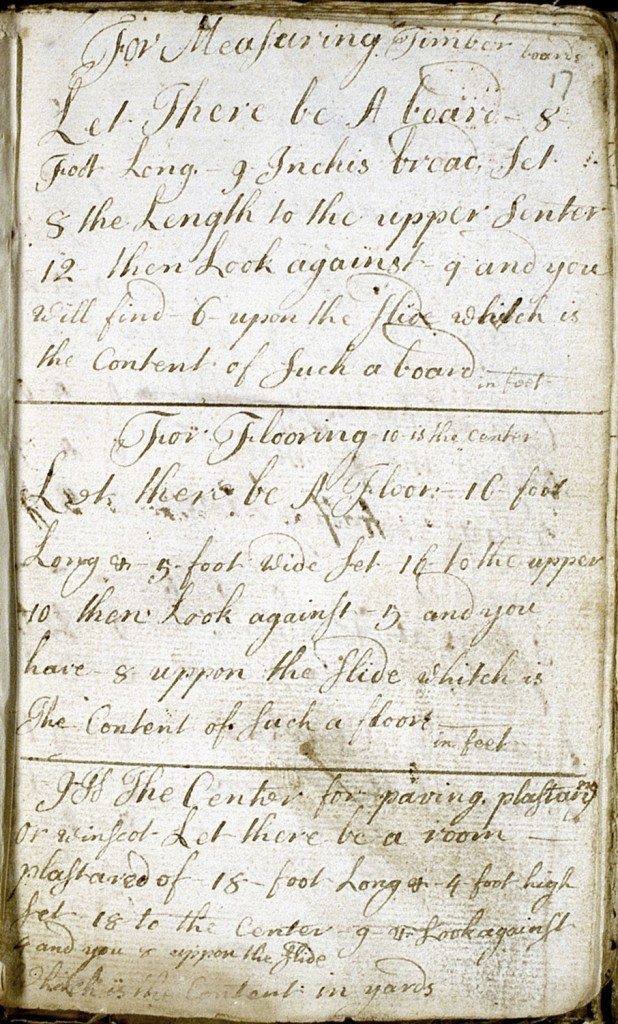 For Measuring Timber boards
17
Let There be A board - 8
Foot Long - 9 Inchis broad, Set
8 the Length to the upper Senter
12 then Look against - 9 and you
will find - 6 - upon the Slide whitch is
the Content of Such a board in feet
For Flooring 10 is the Center
Let there be A Floor - 16 foot
Long & - 5 foot wide Set 16 to the upper
10 then Look against - 5 and you
have - 8 uppon the Slide whitch is
The Content of Such a floor in feet
The Center for paving plastaring
or winscot Let there be a room
plastared of - 18 - foot Long & - 4 foot high
Set 18 to the Center - 9 & Look against
4 and you 8 uppon the Slide
which is the Content in yards